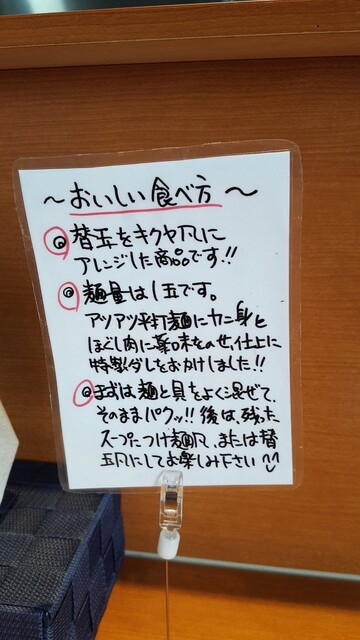 ～おいしい食べ方～
◎替玉をキクヤ风に
アレンジした商品です!!
◎麺量は1玉です。
アツアツ平打麺にカニ身と
ほぐし肉に薬味をのせ、仕上に
特製ダレをおかけしました!!
◎まずは麺と具をよく混ぜて、
そのままパクッ!!後は、残った
スープにつけ麺风、または替
玉风にしてお楽しみ下さい